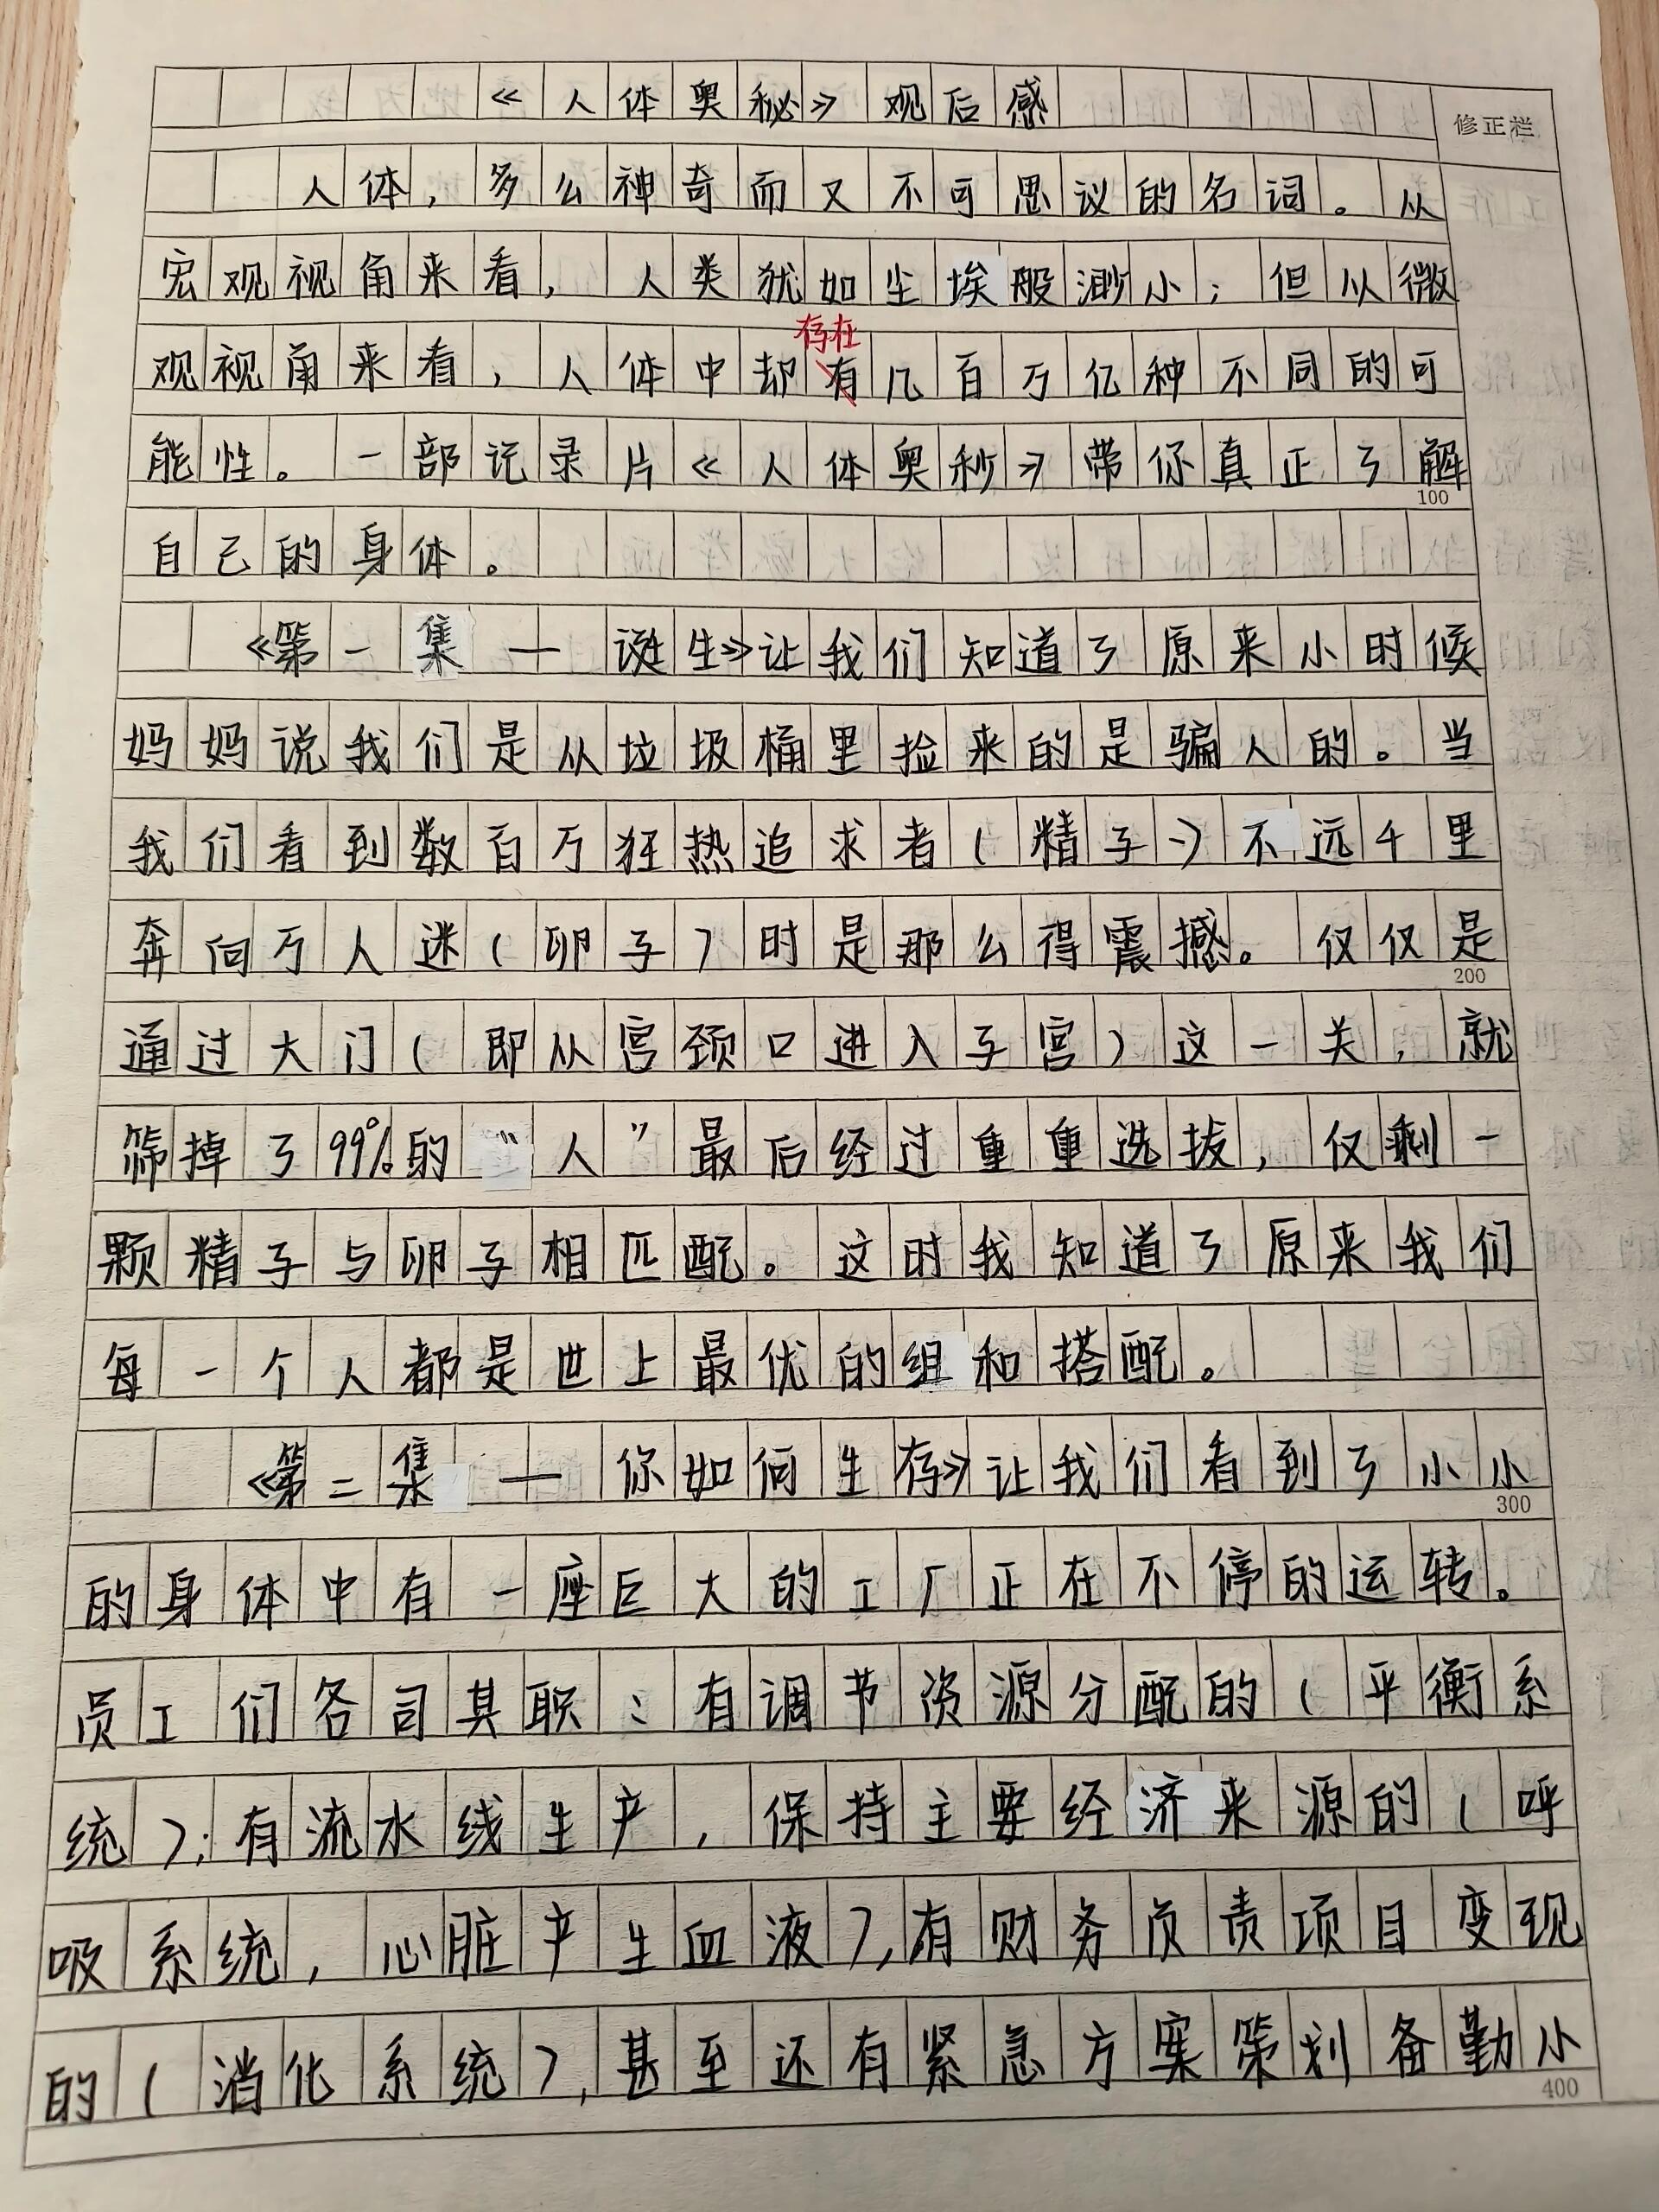 《人体奥秘》观后感
修正栏
人体，多么神奇而又不可思议的名词。从
宏观视角来看，人类犹如尘埃般渺小；但从微
存在
观视角来看，人体中却有几百万亿种不同的可
能性。一部记录片《人体奥秒》带你真正了解
100
自己的身体。
《第一集—诞生》让我们知道了原来小时候
妈妈说我们是从垃圾桶里捡来的是骗人的。当
我们看到数百万狂热追求者（精子）不远千里
奔向万人迷（卵子）时是那么得震撼。仅仅是
200
通过大门（即从宫颈口进入子宫）这一关，就
筛掉了99%的“人”最后经过重重选拔，仅剩一
颗精子与卵子相匹配。这时我知道了原来我们
每一个人都是世上最优的组和搭配。
《第二集—你如何生存》让我们看到了小小
300
的身体中有一座巨大的工厂正在不停的运转。
员工们各司其职：有调节资源分配的（平衡系
统）；有流水线生产，保持主要经济来源的（呼
吸系统，心脏产生血液），有财务负责项目变现
的（消化系统），甚至还有紧急方案策划备勤小
400